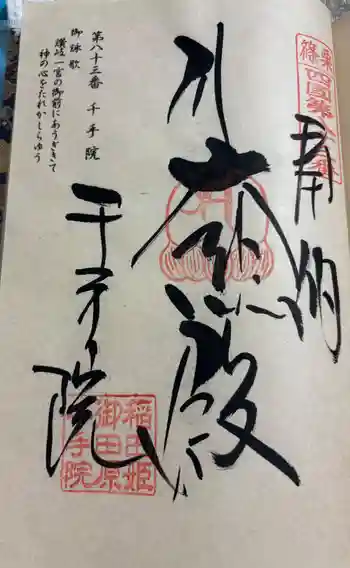 奉納
篠栗
四國第八十三番
千手院
稲田姫
御田原
千手院
第八十三番 千手院
御詠歌
讃岐一宮の御前にあうぎきて
神の心をたれかしらゆう